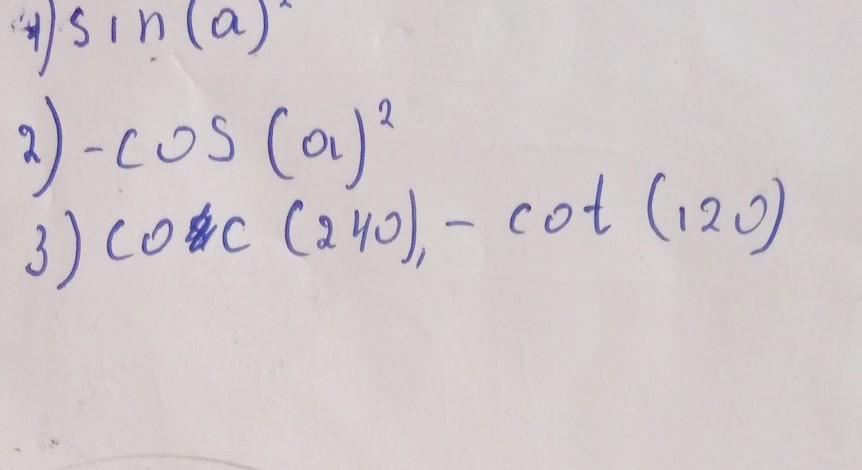 1) sin(a)²
2) -cos (a)²
3) coc (240), - cot (120)